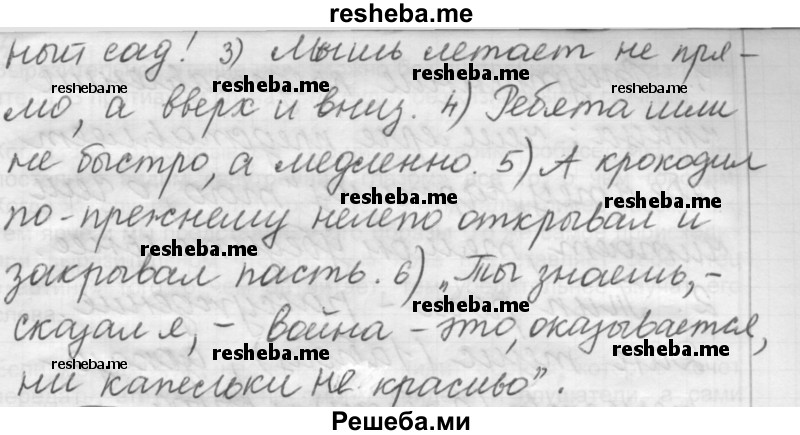 resheba.me
ный сад! 3) Мышь летает не пря-
resheba.me resheba.me resheba.me
мо, а вверх и вниз. 4) Ребята шли
не быстро, а медленно. 5) А крокодил
resheba.me resheba.me
по-прежнему нелепо открывал и
resheba.me
закрывал пасть. 6) „Ты знаешь, -
сказал я, - война - это, оказывается,
resheba.me resheba.me resheba.me
ни капельки не красиво".
Решеба.ми